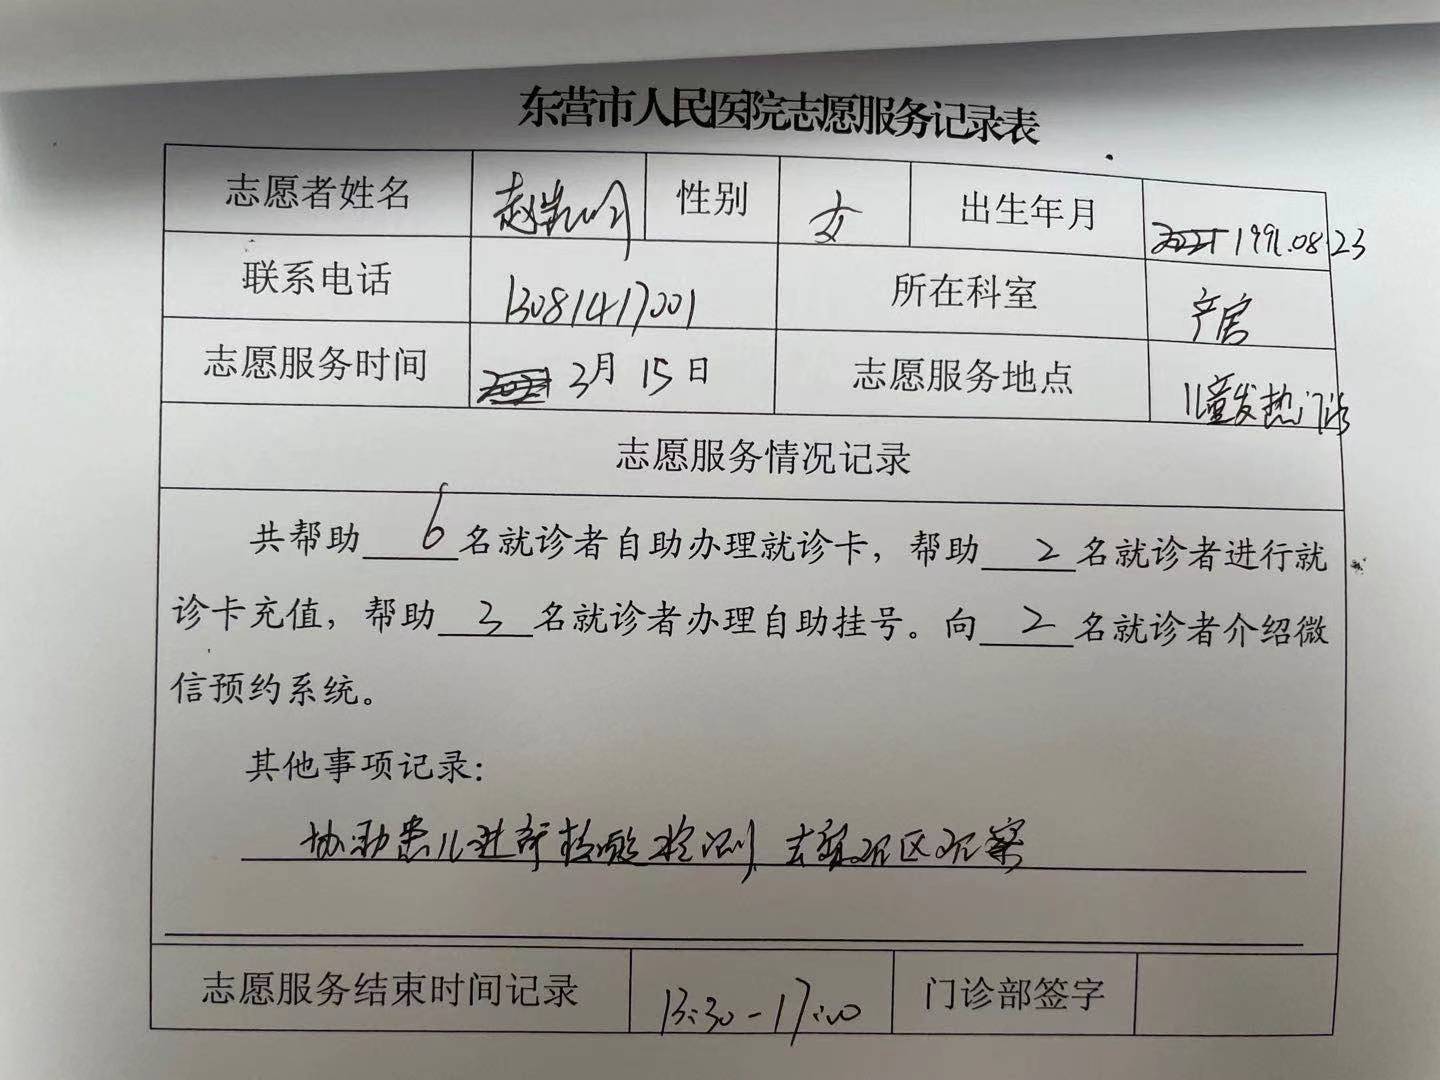 东营市人民医院志愿服务记录表
志愿者姓名 赵 性别 女 出生年月 1991.08.23
联系电话 13081417001 所在科室 产房
志愿服务时间 3月15日 志愿服务地点 儿童发热门诊
志愿服务情况记录
共帮助6名就诊者自助办理就诊卡，帮助2名就诊者进行就
诊卡充值，帮助3名就诊者办理自助挂号。向2名就诊者介绍微
信预约系统。
其他事项记录：
协助患儿进行核酸检测，去留观区观察
志愿服务结束时间记录 13:30-17:00 门诊部签字